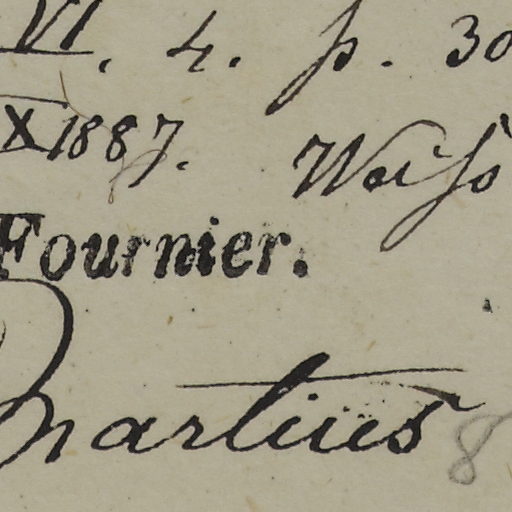 VI. 4. p. 30
X 1887.
Fournier.
Martius 8